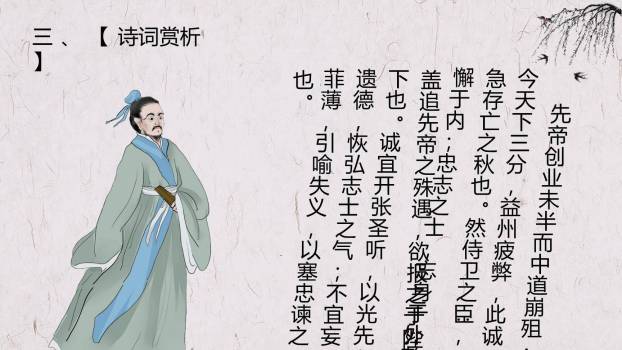 三、【诗词赏析
】
先帝创业未半而中道崩殂,
今天下三分,益州疲弊,此诚
急存亡之秋也。然侍卫之臣,
懈于内;忠志之士忘身
盖追先帝之殊遇,欲报之于陛
下也。诚宜开张圣听,以光先
遗德,恢弘志士之气;不宜妄
菲薄,引喻失义,以塞忠谏之
也。